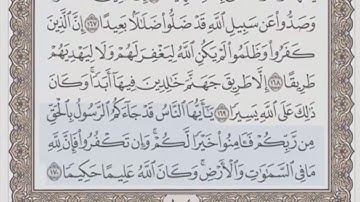 وَصَدُّوا۟ عَن سَبِيلِ ٱللَّهِ قَدْ ضَلُّوا۟ ضَلَٰلًۢا بَعِيدًا ١٦٧ إِنَّ ٱلَّذِينَ
كَفَرُوا۟ وَظَلَمُوا۟ لَمْ يَكُنِ ٱللَّهُ لِيَغْفِرَ لَهُمْ وَلَا لِيَهْدِيَهُمْ
طَرِيقًا ١٦٨ إِلَّا طَرِيقَ جَهَنَّمَ خَٰلِدِينَ فِيهَآ أَبَدًا ۚ وَكَانَ
ذَٰلِكَ عَلَى ٱللَّهِ يَسِيرًا ١٦٩ يَٰٓأَيُّهَا ٱلنَّاسُ قَدْ جَآءَكُمُ ٱلرَّسُولُ بِٱلْحَقِّ
مِن رَّبِّكُمْ فَـَٔامِنُوا۟ خَيْرًا لَّكُمْ ۚ وَإِن تَكْفُرُوا۟ فَإِنَّ لِلَّهِ
مَا فِى ٱلسَّمَٰوَٰتِ وَٱلْأَرْضِ ۚ وَكَانَ ٱللَّهُ عَلِيمًا حَكِيمًا ١٧٠